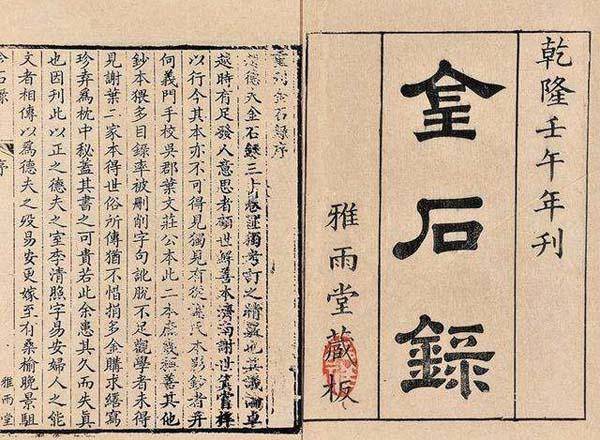 乾隆壬午年刊
金石錄
雅雨堂藏板
重刊金石錄序
德夫金石錄三十卷證獨考訂之精覈也其議論卓
越時有足發人意思者顧世解善本濟南謝世箕嘗梓
以行今其本亦不可得見獨見有從謝氏本影鈔者并
何義門手校吳郡葉文莊公本此二本庶幾稱善其他
鈔本猥多目錄率被刪削字句訛脫不足觀學者未得
見謝葉二家本得世俗所傳猶不惜捐多金購求繕寫
珍弆爲枕中秘蓋其書之可貴若此余患其久而失眞
也因刊此以正之德夫之室李清照字易安婦人之能
文者相傳以爲德夫之歿易安更嫁至有桑榆晚景駔
石錄 序 雅雨堂